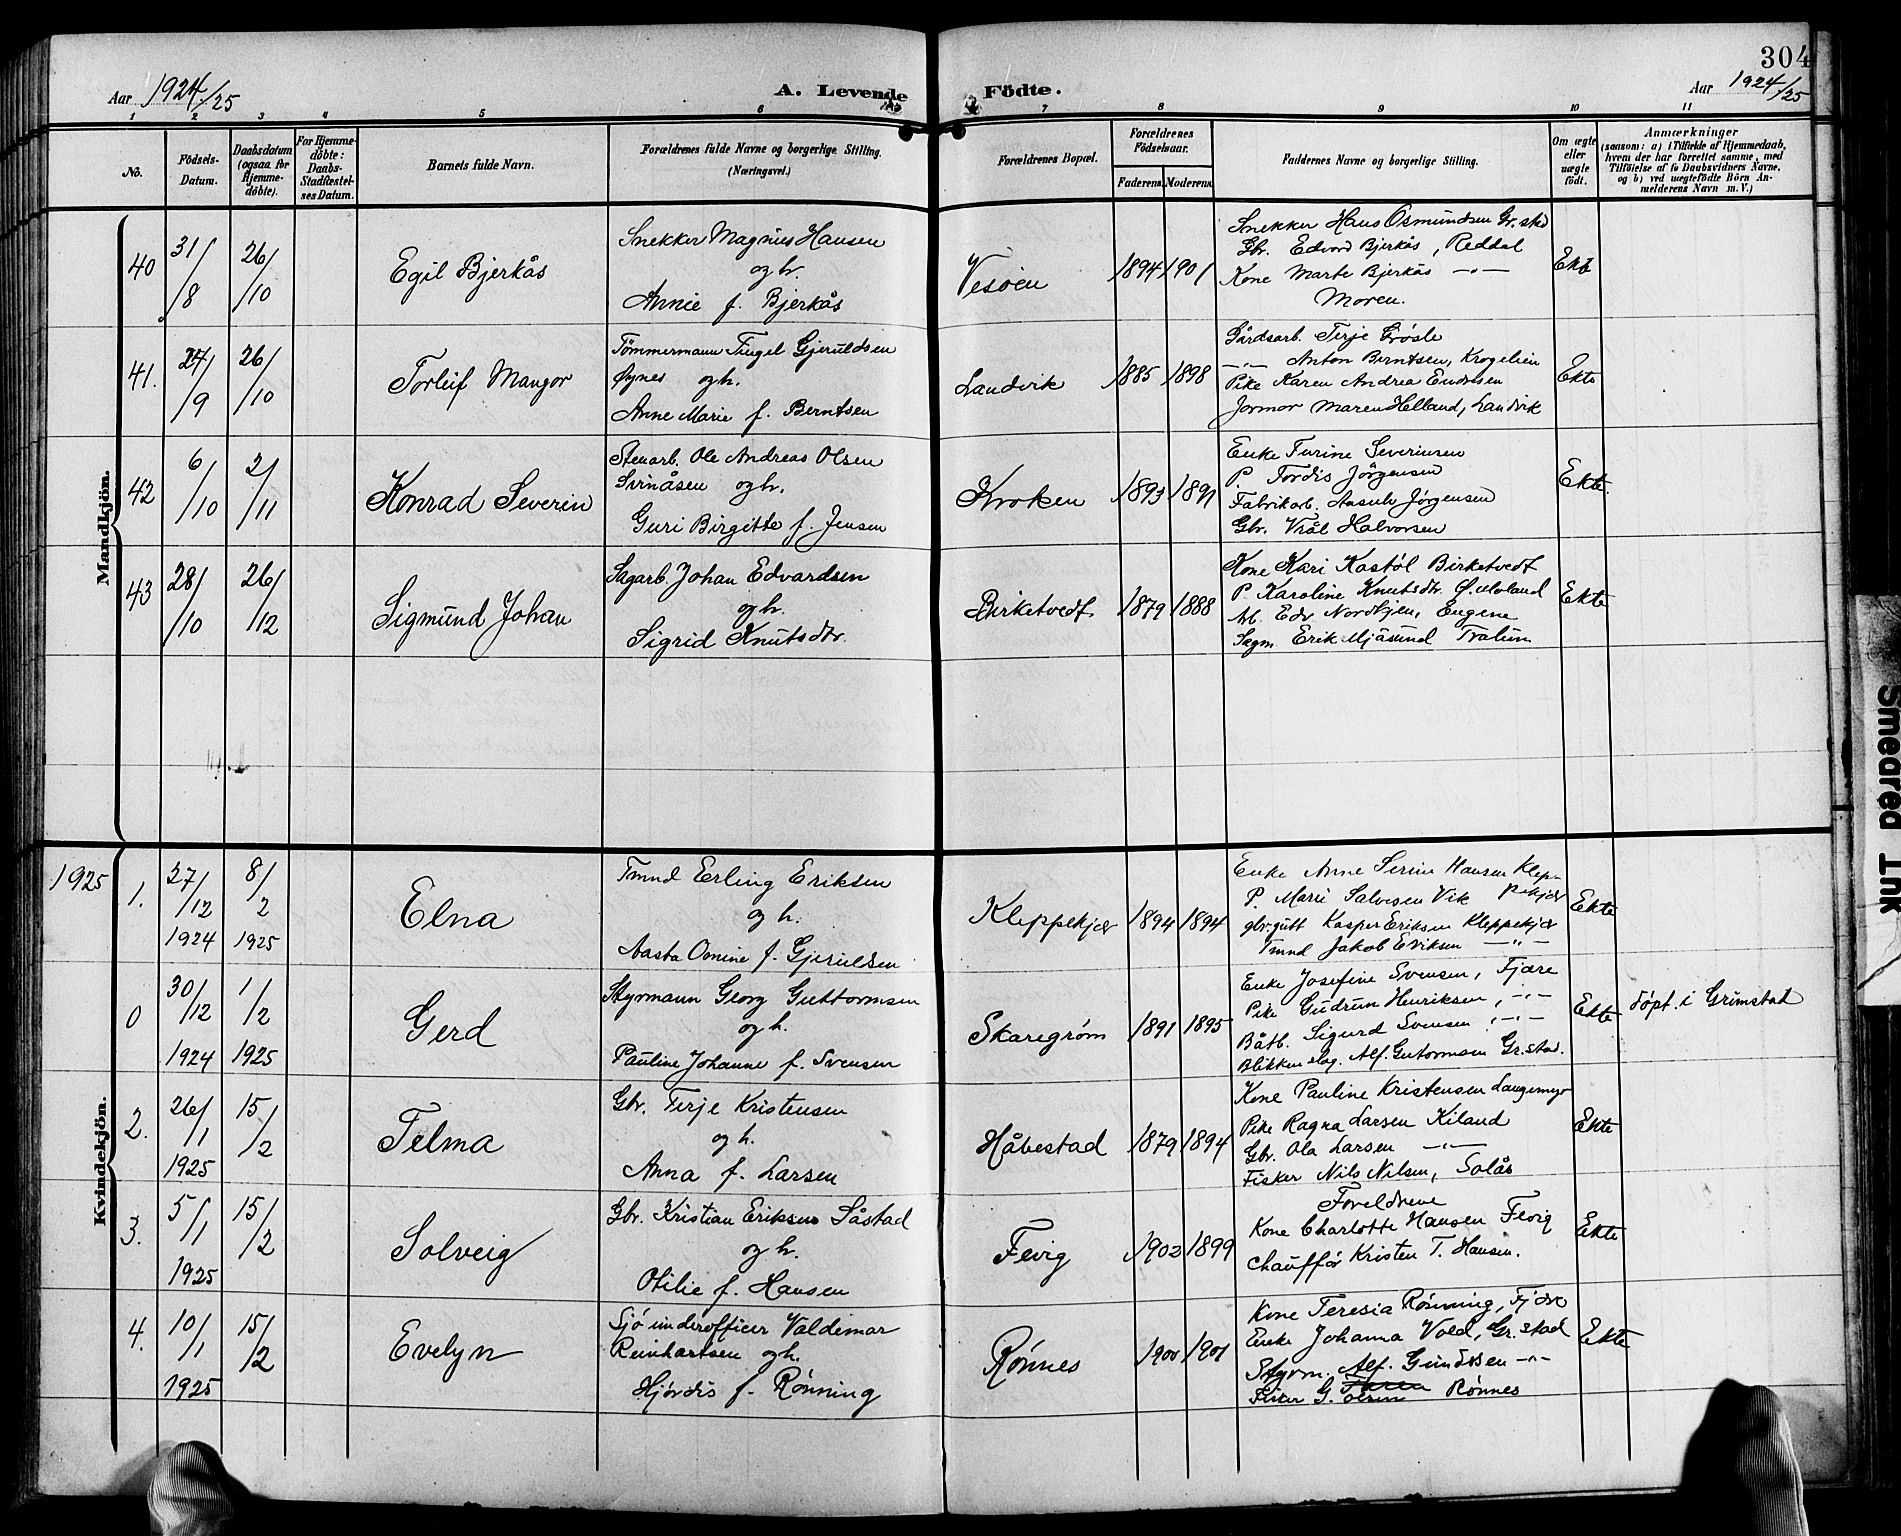 304
Aar 1924/25
A. Levende Födte.
Aar 1924/25
1 2 3 4 5 6 7 8 9 10 11
No.
Födsels-Datum.
Daabsdatum (ogsaa for Hjemme-döbte).
For Hjemme-döbte: Daabs-Stadfæstel-ses Datum.
Barnets fulde Navn.
Forældrenes fulde Navne og borgerlige Stilling. (Næringsvei.)
Forældrenes Bopæl.
Forældrenes Födselsaar.
Faderens. Moderens.
Faddernes Navne og borgerlige Stilling.
Om ægte eller uægte födt.
Anmærkninger
(saasom: a) i Tilfælde af Hjemmedaab,
hvem der har forrettet samme, med
Tilföielse af to Daabsvidners Navne,
og b) ved uægtefödte Börn An-
melderens Navn m. V.)
Mandkjön.
40
31/8
26/10
Egil Bjerkås
Snekker Magnus Hansen
og h.
Annie f. Bjerkås
Vesøen
1894 1901
Snekker Hans Osmundsen Gr.stad
Gbr. Edvard Bjerkås, Reddal
Kone Marte Bjerkås —"—
Moren.
Ekte
41.
24/9
26/10
Torleif Mangor
Tömmermann Tingel Gjeruldsen
Øynes og h.
Anne Marie f. Berntsen
Landvik
1885 1898
Gårdsarb. Terje Grøsle
—"— Anton Berntsen, Krogelien
Pike Karen Andrea Endresen
Jormor Maren Helland, Landvik
Ekte
42
6/10
2/11
Konrad Severin
Stenarb. Ole Andreas Olsen
Svinåsen og h.
Guri Birgitte f. Jensen
Kroken
1893 1891
Enke Turine Severinsen
P. Tordis Jörgensen
Fabrikarb. Aasulv Jørgensen
Gbr. Vrål Halvorsen
Ekte.
43
28/10
26/12
Sigmund Johan
Sagarb. Johan Edvardsen
og h.
Sigrid Knutsdtr.
Birketvedt
1879 1888
Kone Kari Kastöl Birketvedt
P Karoline Knutsdtr. Ø. Moland
Arb. Edv. Nordhjem, Eugene
Sagm. Erik Mjåsund Tralum
Ekte
Kvindekjön.
1925
1.
27/12 1924
8/2 1925
Elna
Tmnd Erling Eriksen
og h.
Aasta Osmine f. Gjeruldsen
Kleppekjær
1894 1894
Enke Anne Serine Hansen Klep-
P. Marie Salvesen Vik pekjær
gbr.gutt Kasper Eriksen Kleppekjær
Tmnd Jakob Eriksen —"—
Ekte
0
30/12 1924
1/2 1925
Gerd
Styrmann Georg Guttormsen
og h.
Pauline Johanne f. Svensen
Skaregrøm
1891 1895
Enke Josefine Svensen, Fjære
Pike Gudrun Henriksen, —"—
Båtb. Sigurd Svensen, —"—
Blikkenslag. Alf. Guttormsen Gr.stad.
Ekte
döpt i Grimstad
2.
26/1 1925
15/2
Telma
Gbr. Terje Kristensen
og h.
Anna f. Larsen
Håbestad
1879 1894
Kone Pauline Kristensen Langemyr
Pike Ragna Larsen Kiland
Gbr. Ola Larsen —"—
Fisker Nils Nilsen, Solås
Ekte
3.
5/1 1925
15/2
Solveig
Gbr. Kristian Eriksen Såstad
og h.
Otilie f. Hansen
Fevig
1902 1899
Foreldrene
Kone Charlotte Hansen Fevig
Chauffør Kristen T. Hansen.
Ekte
4.
10/1 1925
15/2
Evelyn
Sjö underofficer Valdemar
Reinhartsen og h.
Hjördis f. Rönning
Rønnes
1900 1901
Kone Teresia Rønning, Fjære
Enke Johanna Vold, Gr.stad
Styrm. Alf. Gundersen —"—
Fisker G. Olsen Rönnes
Ekte
Smeared Ink